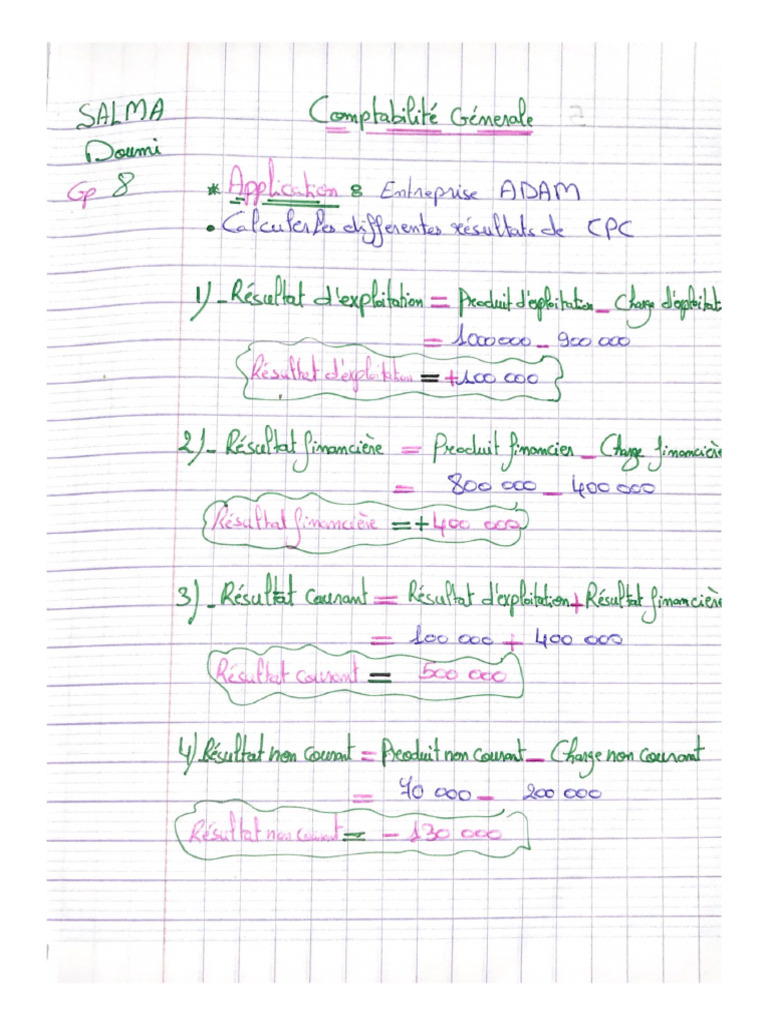 SALMA
Doumi
Gp 8
Comptabilité Génerale
* Application : Entreprise ADAM
• Calculer les differentes résultats de CPC
1)_ Résultat d'exploitation = Produit d'exploitation _ Charge d'exploitat
= 1000000 _ 900 000
Résultat d'exploitation = +100 000
2)_ Résultat financière = Produit financier _ Charge financière
= 800 000 _ 400 000
Résultat financière = + 400 000
3)_ Résultat courant = Résultat d'exploitation + Résultat financière
= 100 000 + 400 000
Résultat courant = 500 000
4) Résultat non courant = Produit non courant _ Charge non courant
= 70 000 _ 200 000
Résultat non courant = - 130 000